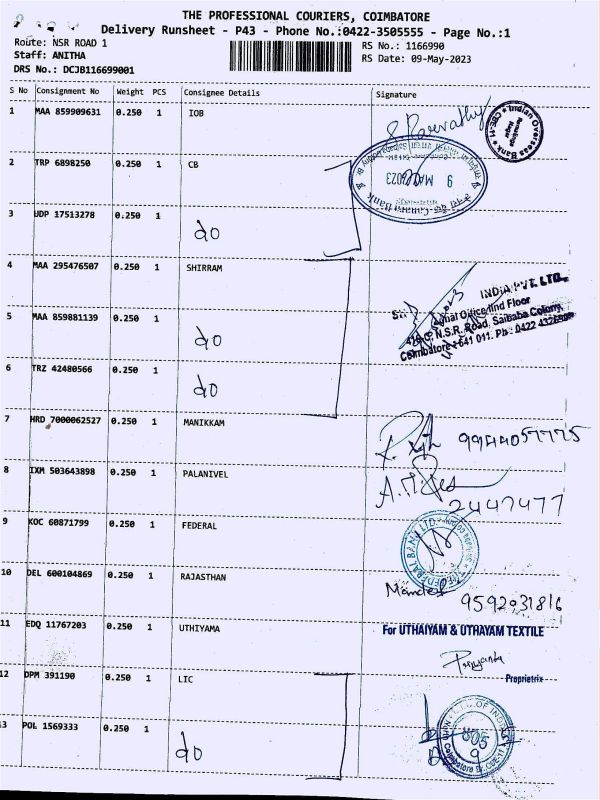 THE PROFESSIONAL COURIERS, COIMBATORE
Delivery Runsheet - P43 - Phone No.:0422-3505555 - Page No.:1
Route: NSR ROAD 1
RS No.: 1166990
Staff: ANITHA
RS Date: 09-May-2023
DRS No.: DCJB116699001
S No Consignment No Weight PCS Consignee Details Signature
1 MAA 859909631 0.250 1 IOB
Indian Overseas Bank
CBE-11
2 TRP 6898250 0.250 1 CB
9 MAY 2023
Canara Bank
3 UDP 17513278 0.250 1 do
4 MAA 295476507 0.250 1 SHIRRAM
INDIA PVT. LTD.,
5 MAA 859881139 0.250 1 do
Office IInd Floor
N.S.R. Road, Saibaba Colony,
Coimbatore - 641 011. Ph : 0422
6 TRZ 42480566 0.250 1 do
7 HRD 7000062527 0.250 1 MANIKKAM
9944057775
8 IXM 503643898 0.250 1 PALANIVEL
2447477
9 KOC 60871799 0.250 1 FEDERAL
FEDERAL BANK LTD.
10 DEL 600104869 0.250 1 RAJASTHAN
9592031816
11 EDQ 11767203 0.250 1 UTHIYAMA
For UTHAIYAM & UTHAYAM TEXTILE
Priyanka
Proprietrix
12 DPM 391190 0.250 1 LIC
13 POL 1569333 0.250 1 do